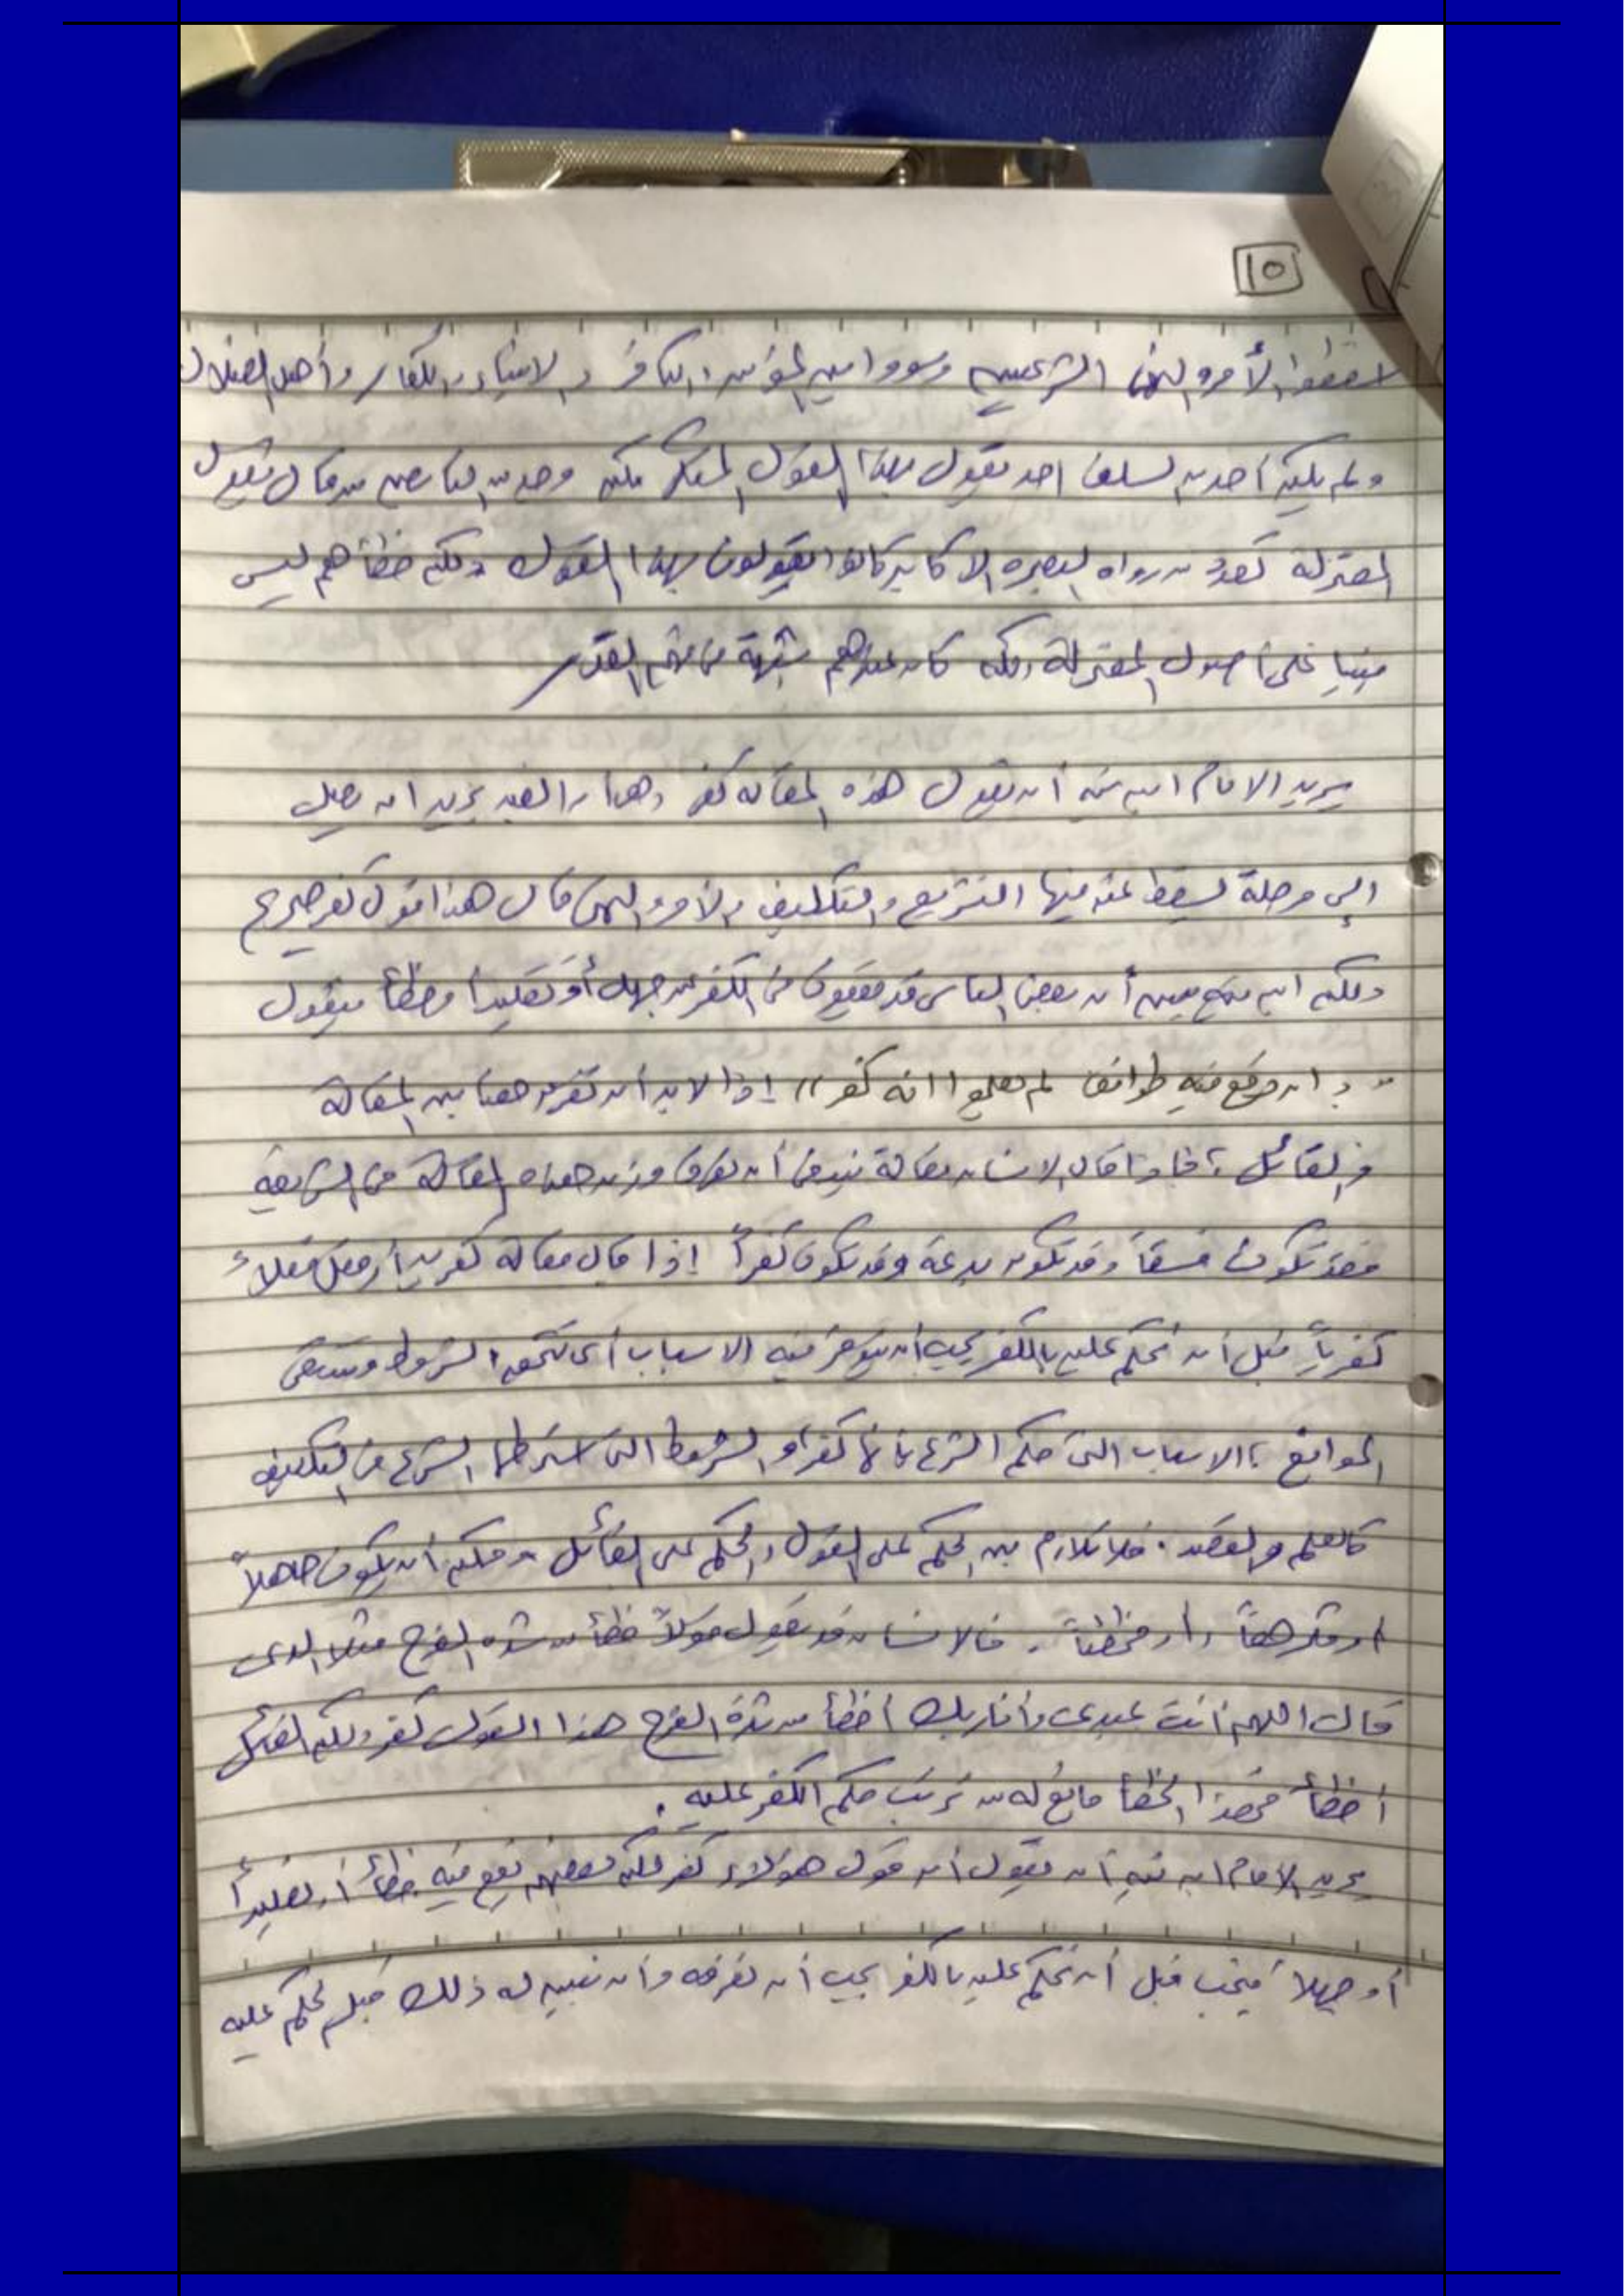 ١٥
اسقطوا الأمر والنهي الشرعيين وسووا بين المؤمن والكافر والانبياء والكفار وأهل الضلال
ولم يكن أحد من السلف احد يقول بهذا القول المنكر لكن وجد من التابعين من قال بقول
المعتزلة كعدد من رواه البصره الاكابر كانوا يقولون بهذا القول ولكن خطأهم ليس
مبنيا على أصول المعتزلة ولكن كان عندهم شبهة في فهم القدر
يريد الامام ابن تيميه أن يقول هذه المقاله كفر وهنا العبد يريد ان يصل
إلى مرحلة يسقط عنه فيها التشريع والتكليف والأمر والنهي قال هذا قول كفر صريح
ولكن ابن تيميه يبين أن بعض الناس قد يقعون في الكفر عن جهل أو تقليداً وخطأ فيقول
" وان وقع فيه طوائف لم يعلموا انه كفر " إذا لابد أن نفرق هنا بين المقالة
والقائل ، فإذا قال الانسان مقالة ينبغي أن نعرف وزن هذه المقالة في الشريعة
فقد تكون فسقاً وقد تكون بدعة وقد تكون كفراً إذا قال مقالة كفرية أو فعل فعلاً
كفرياً قبل أن نحكم عليه بالكفر يجب أن تتوفر فيه الاسباب أي تتحقق الشروط وتنتفي
الموانع ، الاسباب التي حكم الشرع بانها كفراً والشروط التي اشترطها الشرع في التكليف
كالعلم والقصد . فلا تلازم بين الحكم على القول والحكم على القائل فيمكن أن يكون جاهلاً
أو مكرهاً أو مخطئاً . فالانسان قد يقول قولاً خطأ من شده الفرح مثلا الذي
قال اللهم أنت عبدي وأنا ربك أخطأ من شدة الفرح هذا القول كفر ولكن القائل
أخطأ فهذا الخطأ مانع له من ترتب حكم الكفر عليه .
يريد الامام ابن تيميه أن يقول أن قول هؤلاء كفر لكن بعضهم يقع فيه خطأ أو تقليداً
أو جهلا فيجب قبل أن نحكم عليه بالكفر يجب أن نعرفه وأن نبين له ذلك قبل نحكم عليه